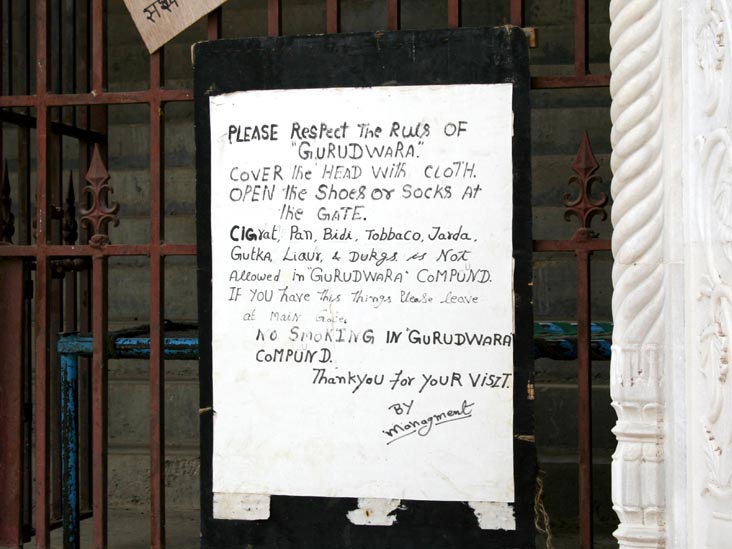 PLEASE Respect The Ruls OF
"GURUDWARA."
COVER the HEAD With CLOTH.
OPEN the Shoes or Socks At
the GATE.
CIGrat, Pan, Bidi, Tobbaco, Jarda,
Gutka, Liqur, & Dukgs is Not
Allowed in "GURUDWARA" COMPUND.
IF YOU have this things Please leave
at Main Gate.
NO SMOKING IN "GURUDWARA"
COMPUND.
Thankyou for your VISIT.
BY
Managment